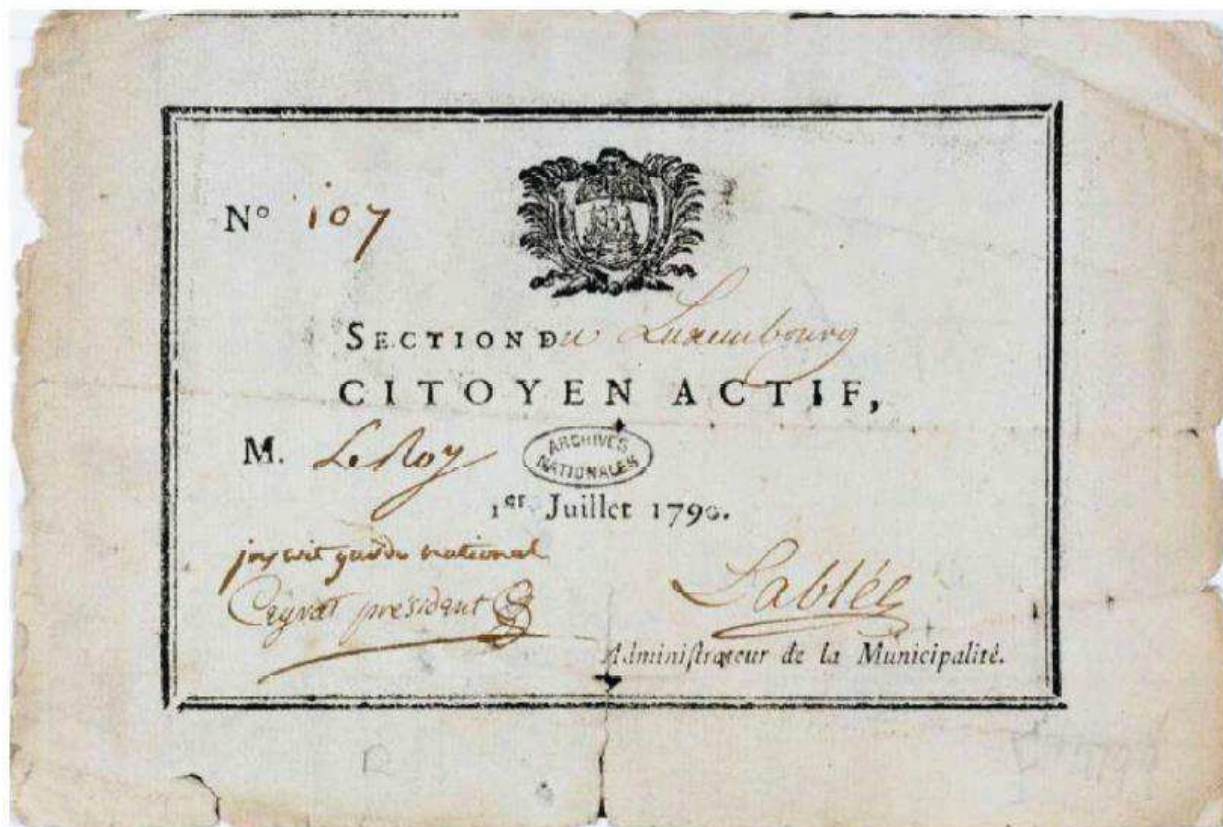 N° 107
SECTION Du Luxembourg
CITOYEN ACTIF,
M. Le Roy
ARCHIVES NATIONALES
1er Juillet 1790.
garde national
président
Lablée
Administrateur de la Municipalité.